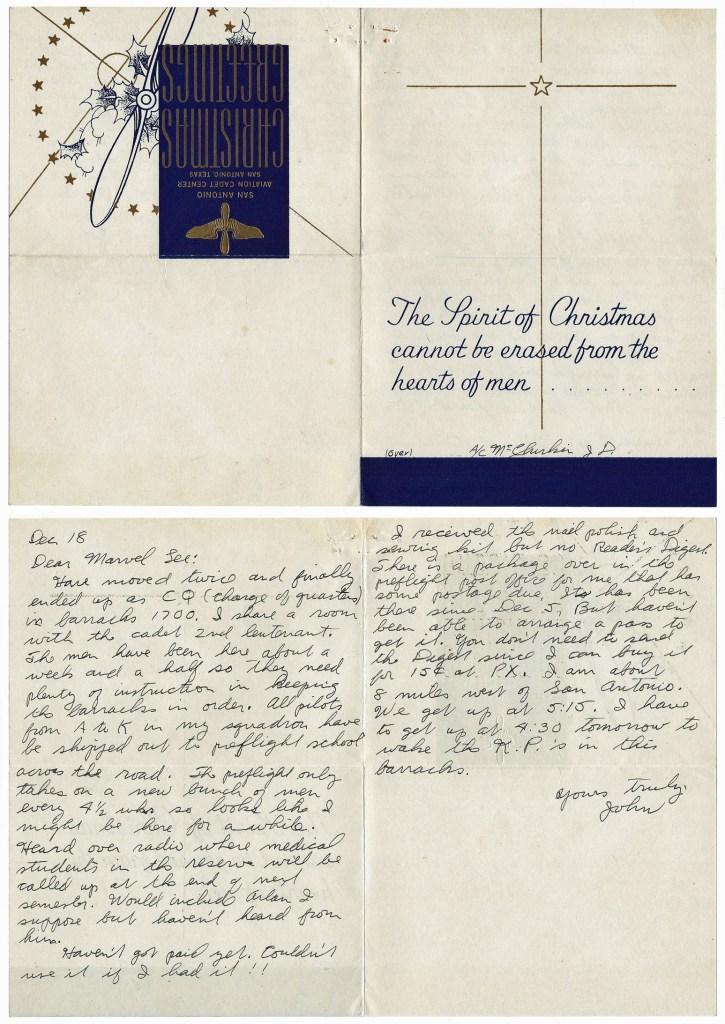 CHRISTMAS
GREETINGS
SAN ANTONIO
AVIATION CADET CENTER
SAN ANTONIO, TEXAS
The Spirit of Christmas
cannot be erased from the
hearts of men . . . . . . . . .
(over)
A/C McClurkin J D.
Dec 18
Dear Marvel Lee:
Have moved twice and finally
ended up as CQ (charge of quarters)
in barracks 1700. I share a room
with the cadet 2nd leutenant.
The men have been here about a
weeks and a half so they need
plenty of instruction in keeping
the barracks in order. All pilots
from A to K in my squadron have
be shipped out to preflight school
across the road. The preflight only
takes on a new bunch of men
every 4½ wks so looks like I
might be here for a while.
Heard over radio where medical
students in the reserve will be
called up at the end of next
semester. Would include Arlan I
suppose but haven't heard from
him.
Haven't got paid yet. Couldn't
use it if I had it!!
I received the nail polish and
sewing kit but no Readers Digest.
There is a package over in the
preflight post office for me, that has
some postage due. Its has been
there since Dec 5. But haven't
been able to arraige a pass to
get it. You don't need to send
the Digest since I can buy it
for 15¢ at P.X. I am about
8 miles west of San Antonio.
We get up at 5:15. I have
to get up at 4:30 tomorrow to
wake the K.P.'s in this
barracks.
Yours truly,
John